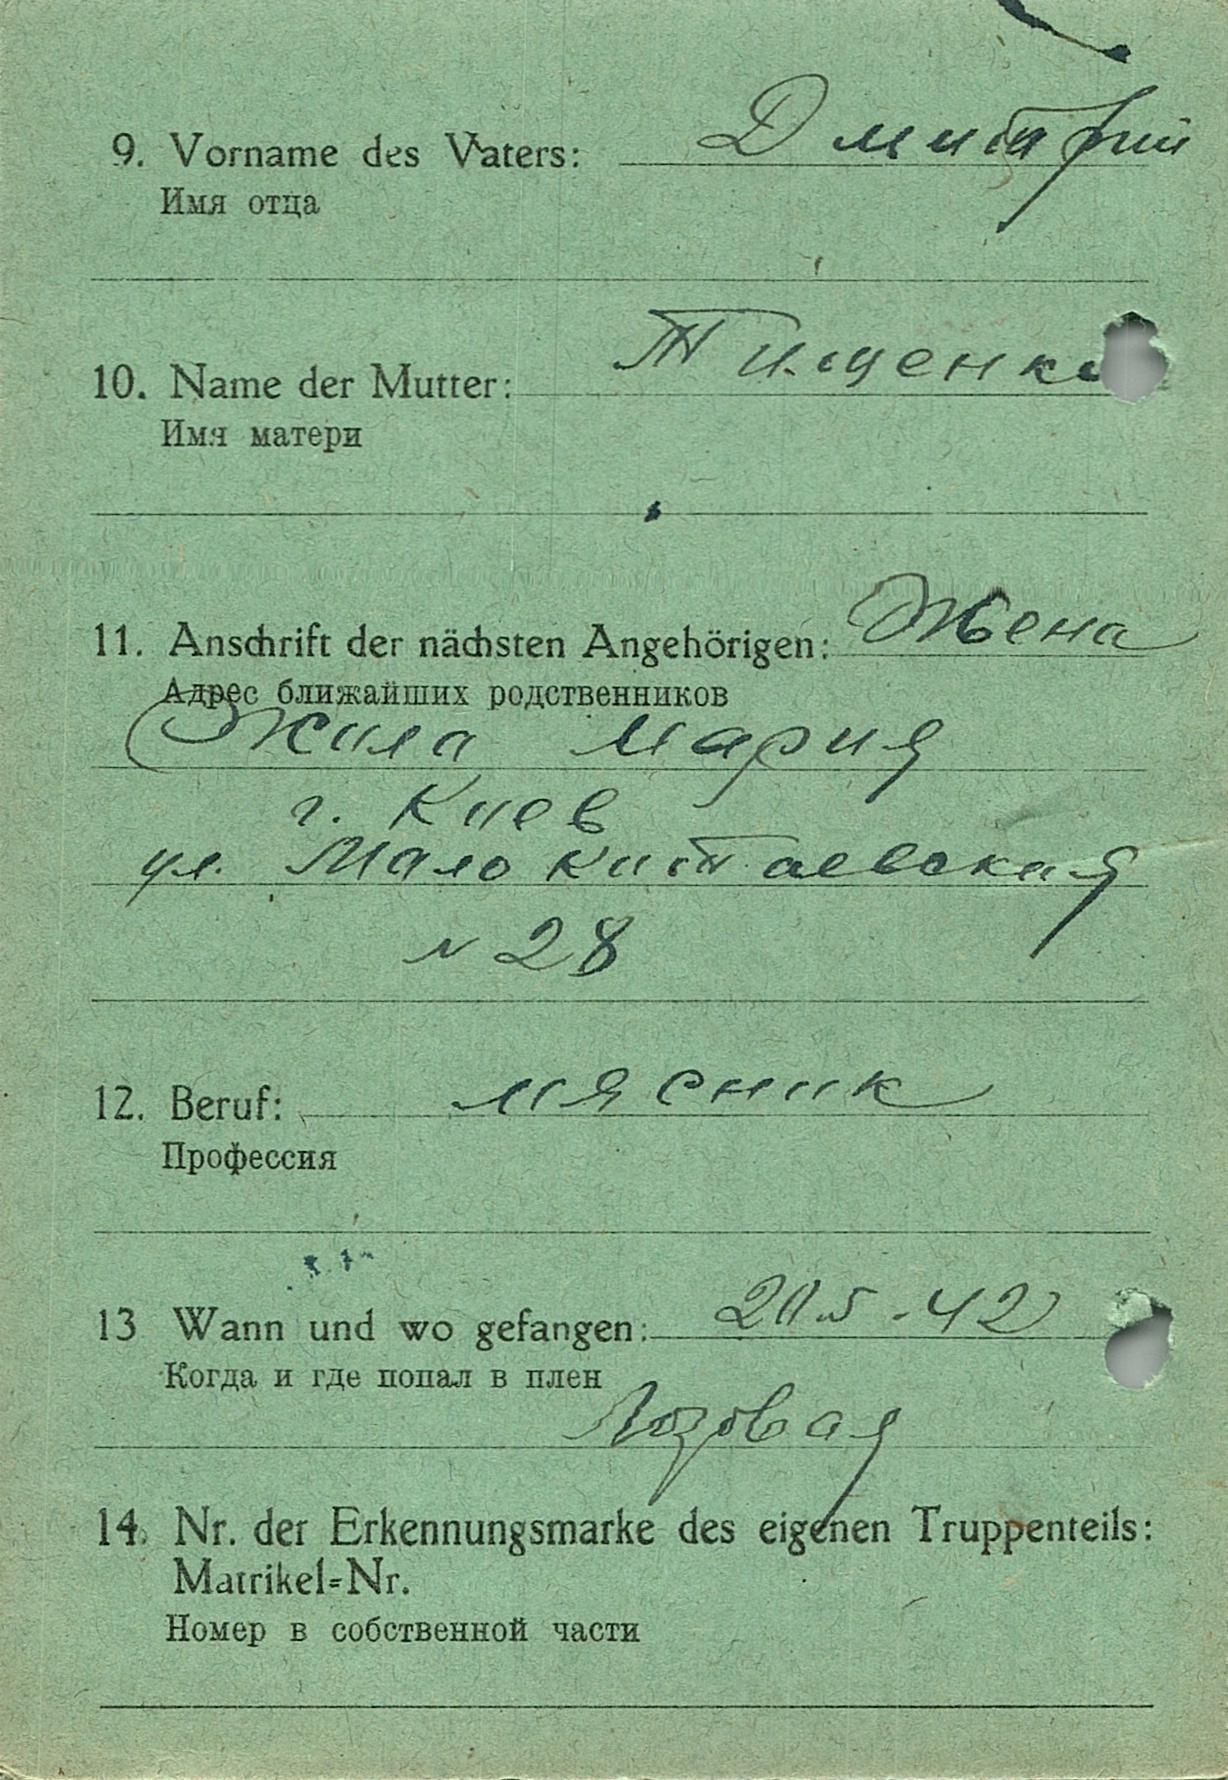 9. Vorname des Vaters: Дмитрий
Имя отца
10. Name der Mutter: Тищенко
Имя матери
11. Anschrift der nächsten Angehörigen: Жена
Адрес ближайших родственников
Жила Мария
г. Киев
ул. Мало Китаевская
№ 28
12. Beruf: мясник
Профессия
13 Wann und wo gefangen: 20.5.-42
Когда и где попал в плен
Лозовая
14. Nr. der Erkennungsmarke des eigenen Truppenteils:
Matrikel=Nr.
Номер в собственной части